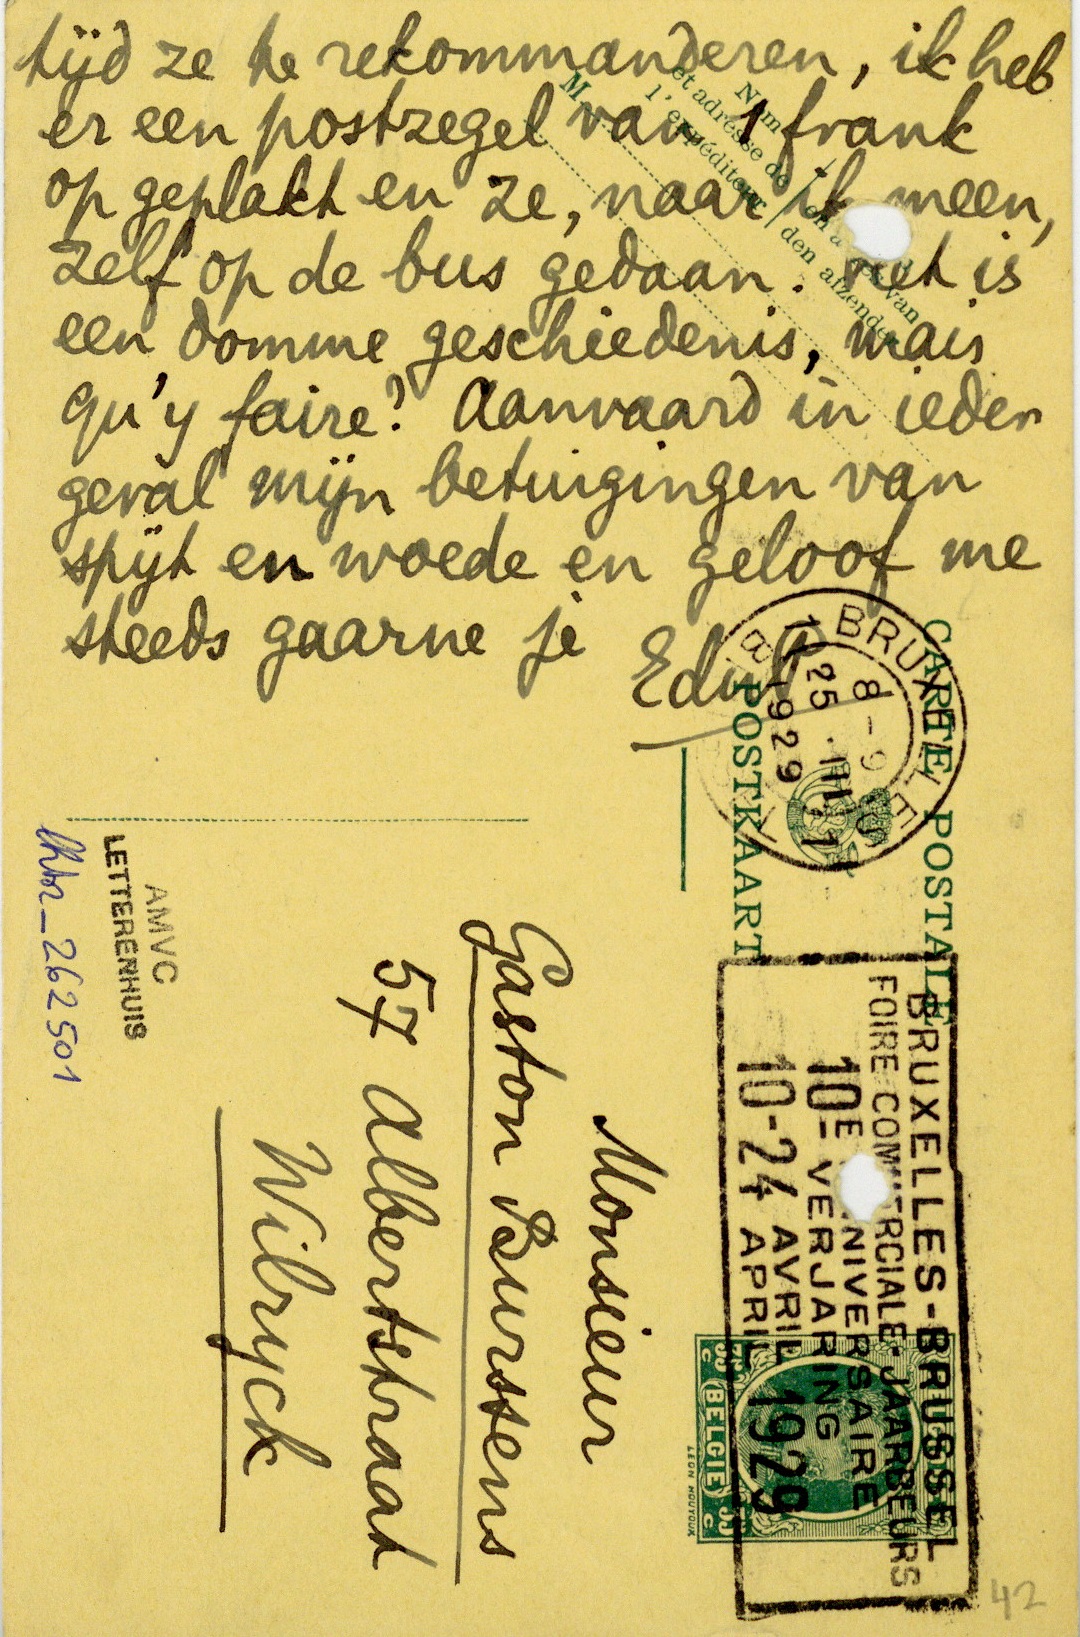 tijd ze te rekommanderen, ik heb
er een postzegel van 1 frank
op geplakt en ze, naar ik meen,
zelf op de bus gedaan. Het is
een domme geschiedenis, mais
qu'y faire? Aanvaard in ieder
geval mijn betuigingen van
spijt en woede en geloof me
steeds gaarne je
Edu
M.
Nom
et adresse de
l'expéditeur
van
den afzender
CARTE POSTALE
POSTKAART
1 BRUXELLES 1
8-9
25 · III
1929
BRUXELLES-BRUSSEL
FOIRE COMMERCIALE-JAARBEURS
10E ANNIVERSAIRE
10E VERJARING
10-24 AVRIL 1929
10-24 APRIL
35 c BELGIE 35 c
LEON HOUYOUX
Monsieur
Gaston Burssens
57 Albertstraat
Wilryck
AMVC
LETTERENHUIS
262501
42